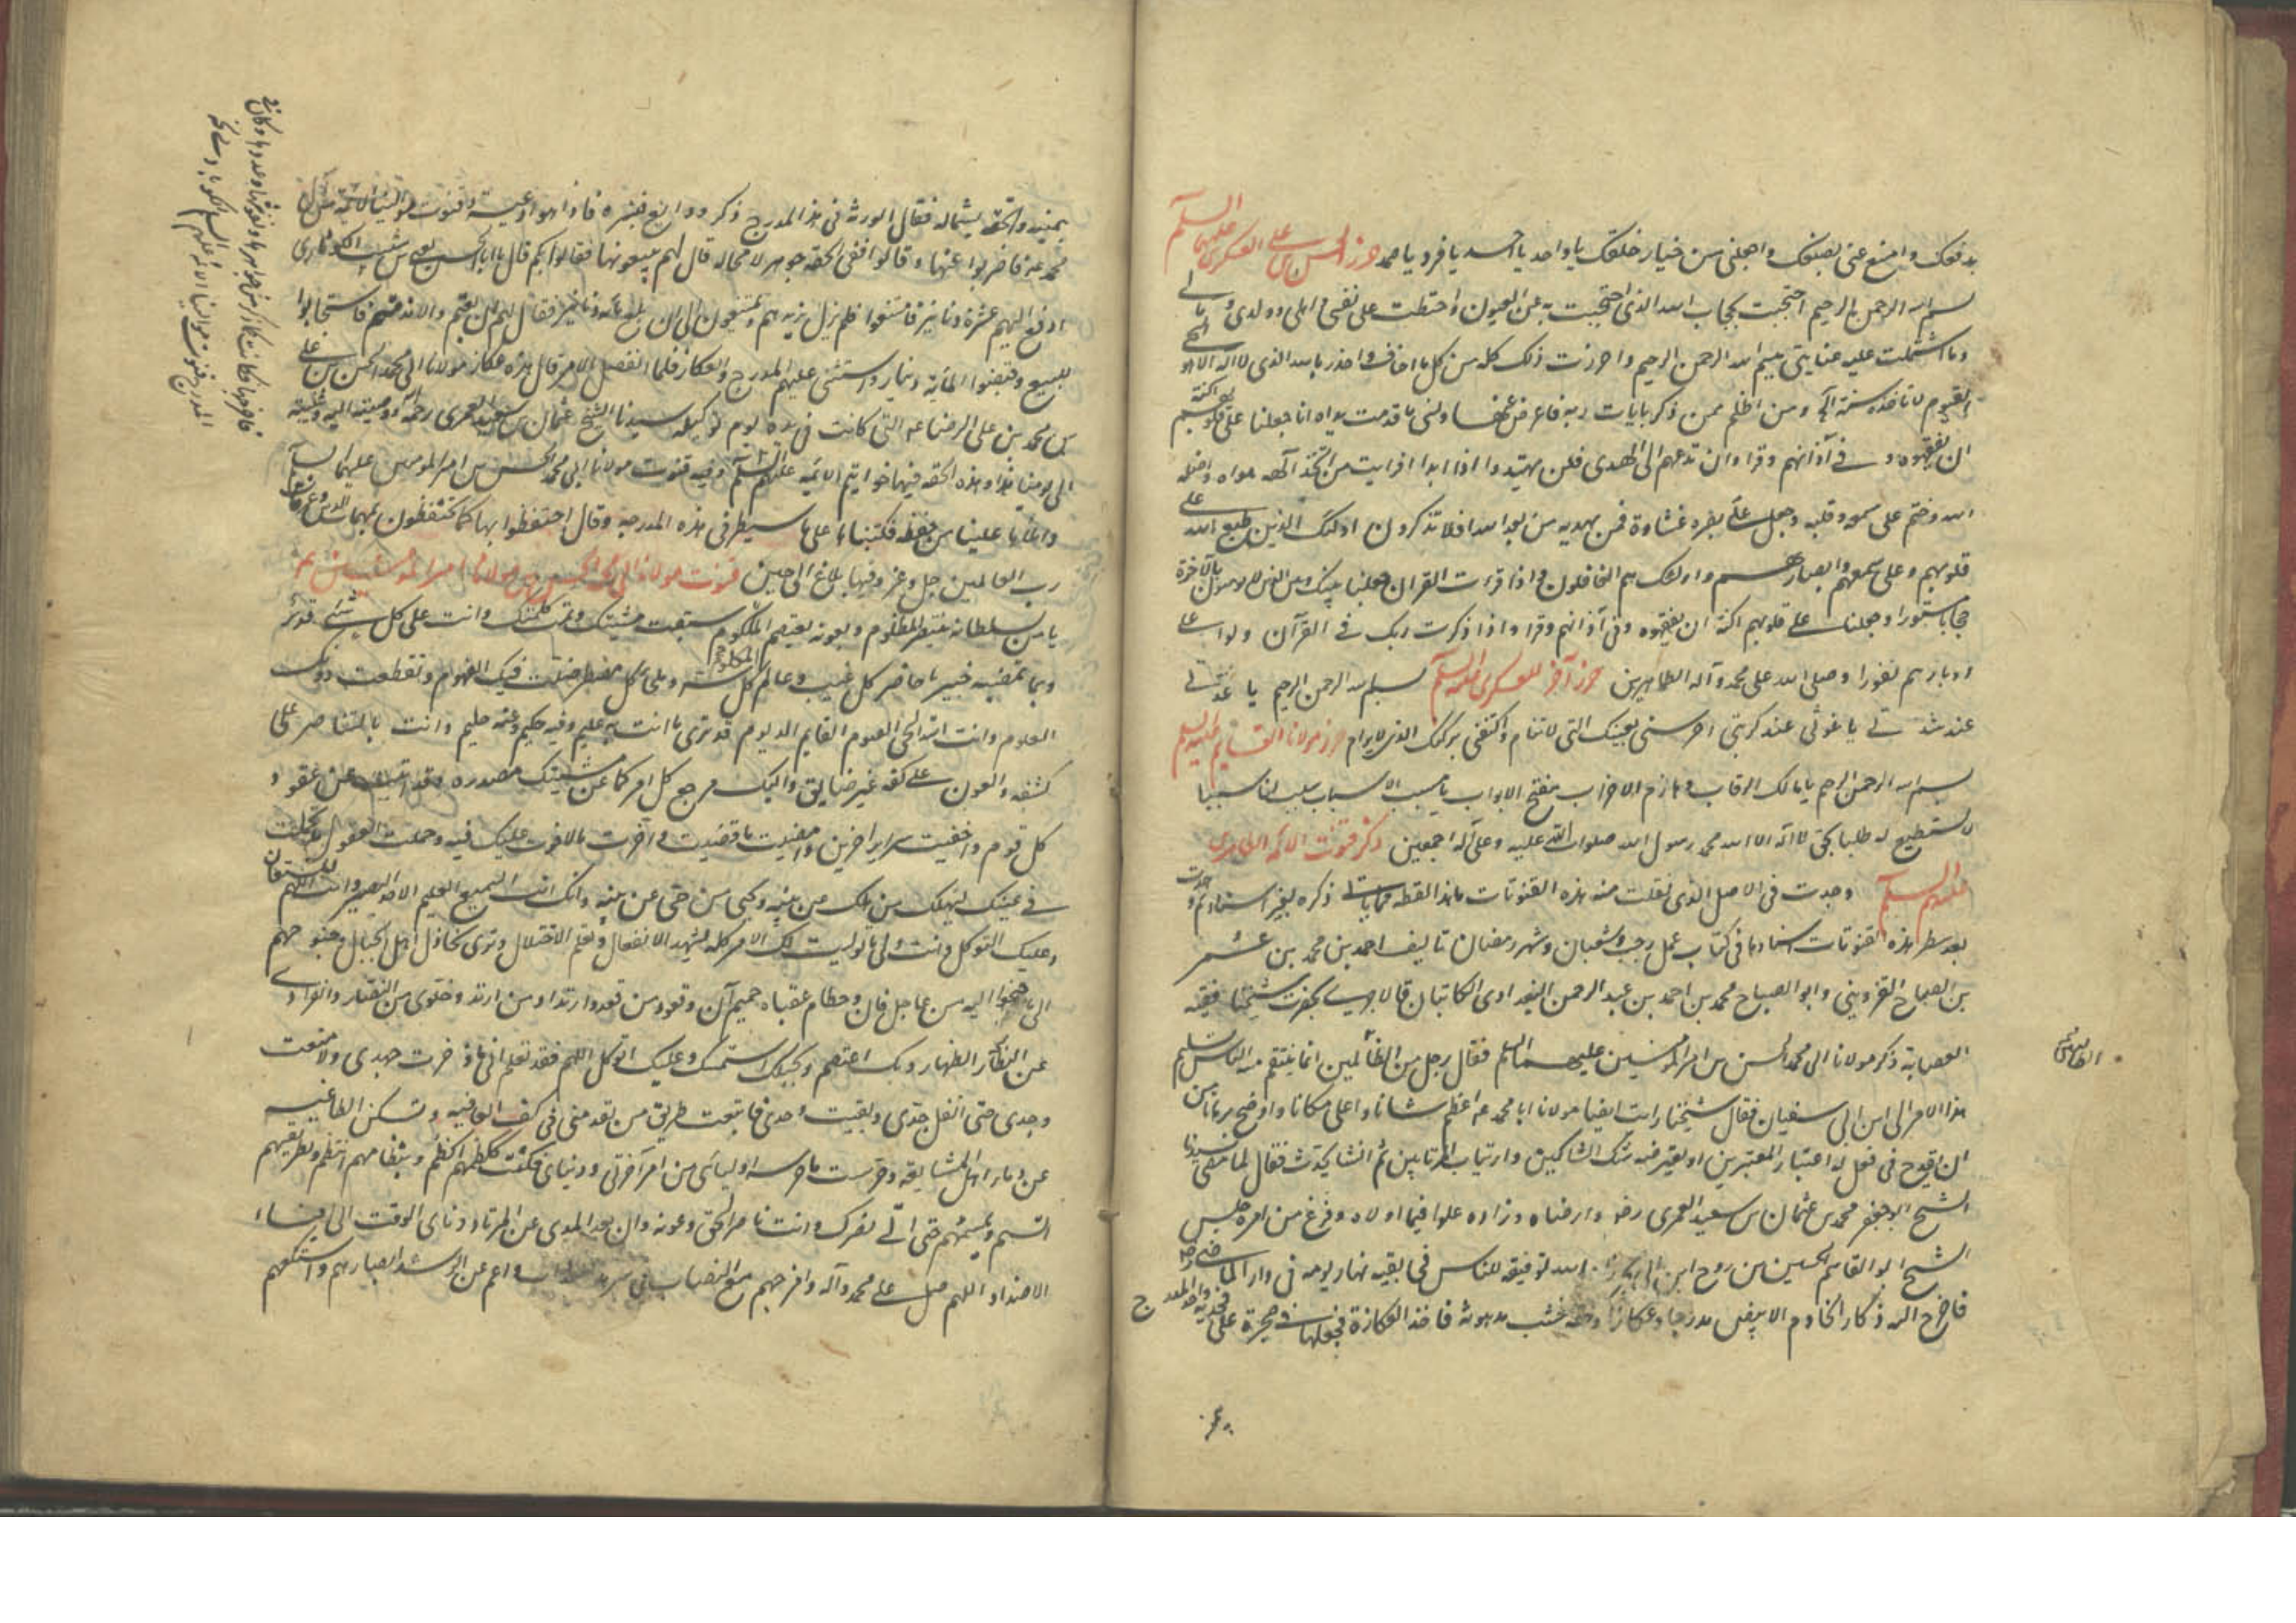 بدفعك وامنع عني بصنعك واجعلني من خيار خلقك يا واحد يا احد يا فرد يا صمد حرز الحسن بن علي العسكري عليهما السلام
بسم الله الرحمن الرحيم احتجبت بحجاب الله الذي احتجبت به عن العيون واحتطت على نفسي واهلي وولدي ومالي
وما اشتملت عليه عنايتي ببسم الله الرحمن الرحيم واحرزت ذلك كله من كل ما اخاف واحذر بالله الذي لا اله الا هو الحي
القيوم لا تاخذه سنة الآية ومن اظلم ممن ذكر بايات ربه فاعرض عنها ونسي ما قدمت يداه انا جعلنا على قلوبهم اكنة
ان يفقهوه وفي آذانهم وقرا وان تدعهم الى الهدى فلن يهتدوا اذا ابدا افرايت من اتخذ الهه هواه واضله
الله وختم على سمعه وقلبه وجعل على بصره غشاوة فمن يهديه من بعد الله افلا تذكرون اولئك الذين طبع الله على
قلوبهم وعلى سمعهم وابصارهم واولئك هم الغافلون واذا قرءت القران جعلنا بينك وبين الذين لا يومنون بالاخرة
حجابا مستورا وجعلنا على قلوبهم اكنة ان يفقهوه وفي آذانهم وقرا واذا ذكرت ربك في القرآن ولوا على
ادبارهم نفورا وصلى الله على محمد وآله الطاهرين حرز آخر للعسكري عليه السلام بسم الله الرحمن الرحيم يا عدتي
عند شدتي يا غوثي عند كربتي احرسني بعينك التي لا تنام واكنفني بركنك الذي لا يرام حرز مولانا القائم عليه السلم
بسم الله الرحمن الرحيم يا مالك الرقاب وهازم الاحزاب يا مفتح الابواب يا مسبب الاسباب سبب لنا سببا
لا نستطيع له طلبا بحق لا اله الا الله محمد رسول الله صلوات الله عليه وعلى آله اجمعين ذكر قنوت الائمة الطاهرين
عليهم السلم وجدت في الاصل الذي نقلت منه هذه القنوتات ما هذا لفظه مما ياتي ذكره بغير اسناد ثم وجدت
بعد سطر هذه القنوتات اسنادها في كتاب عمل رجب وشعبان وشهر رمضان تاليف احمد بن محمد بن عبد الله
بن العياش القزويني وابو الصباح محمد بن احمد بن عبد الرحمن البغدادي الكاتبان قالا جرى بحضرت شيخنا فقيه
العصابة ذكر مولانا ابي محمد الحسن بن امير المؤمنين عليهما السلم فقال رجل من الطالبين انما ينتقم منه الناس تسليم
هذا الامر الى ابن ابي سفيان فقال شيخنا رايت ايضا مولانا ابا محمد عه اعظم شانا واعلى مكانا واوضح برهانا من
ان يقدح في فعل له اعتبار المعتبرين او يعترضه شك الشاكين وارتياب المرتابين ثم انشا يحدث فقال لما مضى سيدنا
الشيخ ابو جعفر محمد بن عثمان بن سعيد العمري رضه وارضاه وزاده علوا فيما اولاه وفرغ من امره جلس
الشيخ ابو القاسم الحسين بن روح ابن ابي بحر زاد الله توفيقه للناس في بقية نهار يومه في دار الماضي رضه
فاخرج اليه ذكار الخادم الابيض مدرجا وعكازا وحقة خشب مدهونة فاخذ العكازة فجعلها في حجره على فخذيه واخذ المدرج
بيمينه والحقة بشماله فقال الورثة في هذا المدرج ذكر ودايع فنشره فاذا هو ادعية وقنوت موالينا الائمة من آل
محمد عه فاضربوا عنها وقالوا ففي الحقة جوهر لا محاله قال لهم تبيعونها فقالوا بكم قال يا ابا الحسن يعني بن شبيب الكوثاري
ادفع اليهم عشرة دنانير فامتنعوا فلم يزل يزيدهم ويمتنعون الى ان بلغ مائة دنانير فقال لهم ان بعتم والا ندمتم فاستجابوا
للبيع وقبضوا المائة دينار واستثنى عليهم المدرج والعكاز فلما انفصل الامر قال هذه عكاز مولانا ابي محمد الحسن بن علي
بن محمد بن علي الرضا عه التي كانت في يده يوم توكيله سيدنا الشيخ عثمان بن سعيد العمري رحمه الله ووصيته اليه وغيبته
الى يومنا هذا وهذه الحقة فيها خواتيم الائمة عليهم السلم وفيه قنوت مولانا ابي محمد الحسن بن امير المومنين عليهما السلم
واملاها علينا من حفظه فكتبناها على ما سطر في هذه المدرجة وقال احتفظوا بها كما تحتفظون بمهمات الدين وعزمات
رب العالمين جل وعز وفيها بلاغ الى حين قنوت مولانا ابي محمد الحسن بن مولانا امير المؤمنين
يا من بسلطانه ينتصر المظلوم وبعونه يعتصم المكلوم سبقت مشيتك وتمت كلمتك وانت على كل شئ قدير
وبما تمضيه خبير يا حاضر كل غيب وعالم كل سر وملجأ كل مضطر ضلت فيك الفهوم وتقطعت دونك
العلوم وانت الله الحي القيوم الدائم الديوم قد ترى ما انت به عليم وفيه حكيم وعنه حليم وانت بالتناصر على
كشفه والعون على كفه غير ضايق واليك مرجع كل امر كما عن مشيتك مصدره وقد ابنت عن عقود
كل قوم واخفيت سراير اخرين وامضيت ما قضيت واخرت ما لا فوت عليك فيه وحملت العقول ما تحملت
في غيبك ليهلك من هلك عن بينه ويحيى من حي عن بينه وانك انت السميع العليم الاحد البصير وانت اللهم المستعان
وعليك التوكل وانت ولي ما توليت لك الامر كله تشهد الانفعال وتعلم الاختلال وترى تخاذل اهل الخبال وجنوحهم
الى ما جنحوا اليه من عاجل فان وحطام عقباه حميم آن وقعود من قعد وارتداد من ارتد وخلوي من النصار وانفرادي
عن الظهار وبك اعتصم وبحبلك استمسك وعليك اتوكل اللهم فقد تعلم اني ما ذخرت جهدي ولا منعت
وجدي حتى انفل حدي وبقيت وحدي فاتبعت طريق من تقدمني في كف العافية وتسكين الطاغية
عن دماء اهل المشايعة وحرست ما حرسه اوليائي من امر آخرتي ودنياي فكنت ككظمهم اكظم وبنظامهم انتظم وبطريقهم
اتسم وبميسمهم حتى ياتي نصرك وانت ناصر الحق وعونه وان بعد المدى عن المرتاد ونأى الوقت الى افناء
الاضداد اللهم صل على محمد وآله وامزجهم مع النصاب في سرمد العذاب واعم عن الرشد ابصارهم وسكعهم